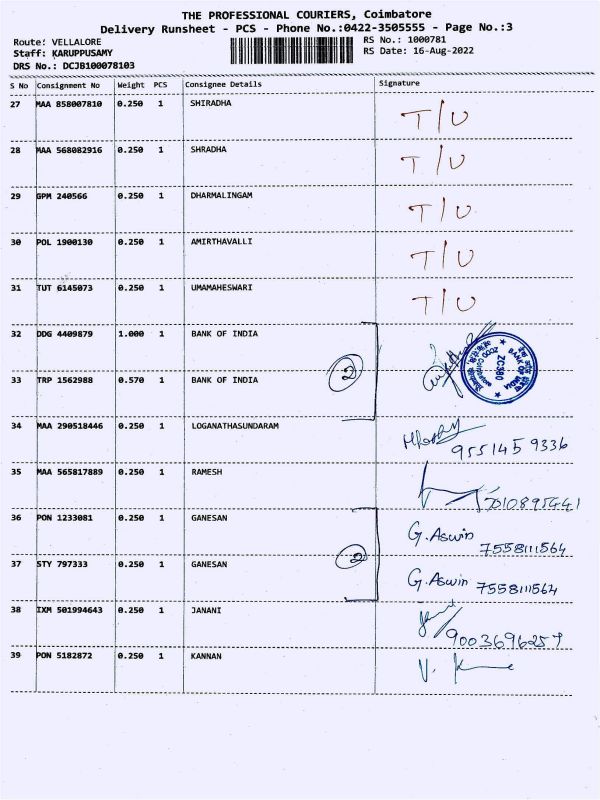 THE PROFESSIONAL COURIERS, Coimbatore
Delivery Runsheet - PCS - Phone No.:0422-3505555 - Page No.:3
Route: VELLALORE RS No.: 1000781
Staff: KARUPPUSAMY RS Date: 16-Aug-2022
DRS No.: DCJB100078103
S No Consignment No Weight PCS Consignee Details Signature
27 MAA 858007810 0.250 1 SHIRADHA T/U
28 MAA 568082916 0.250 1 SHRADHA T/U
29 GPM 240566 0.250 1 DHARMALINGAM T/U
30 POL 1900130 0.250 1 AMIRTHAVALLI T/U
31 TUT 6145073 0.250 1 UMAMAHESWARI T/U
32 DDG 4409879 1.000 1 BANK OF INDIA
BANK OF INDIA
ZC380
ZCOD Coimbatore
33 TRP 1562988 0.570 1 BANK OF INDIA
34 MAA 290518446 0.250 1 LOGANATHASUNDARAM
9551459336
35 MAA 565817889 0.250 1 RAMESH
7010895441
36 PON 1233081 0.250 1 GANESAN G. Aswin
7558111564
2
37 STY 797333 0.250 1 GANESAN G. Aswin 7558111564
38 IXM 501994643 0.250 1 JANANI
9003696257
39 PON 5182872 0.250 1 KANNAN